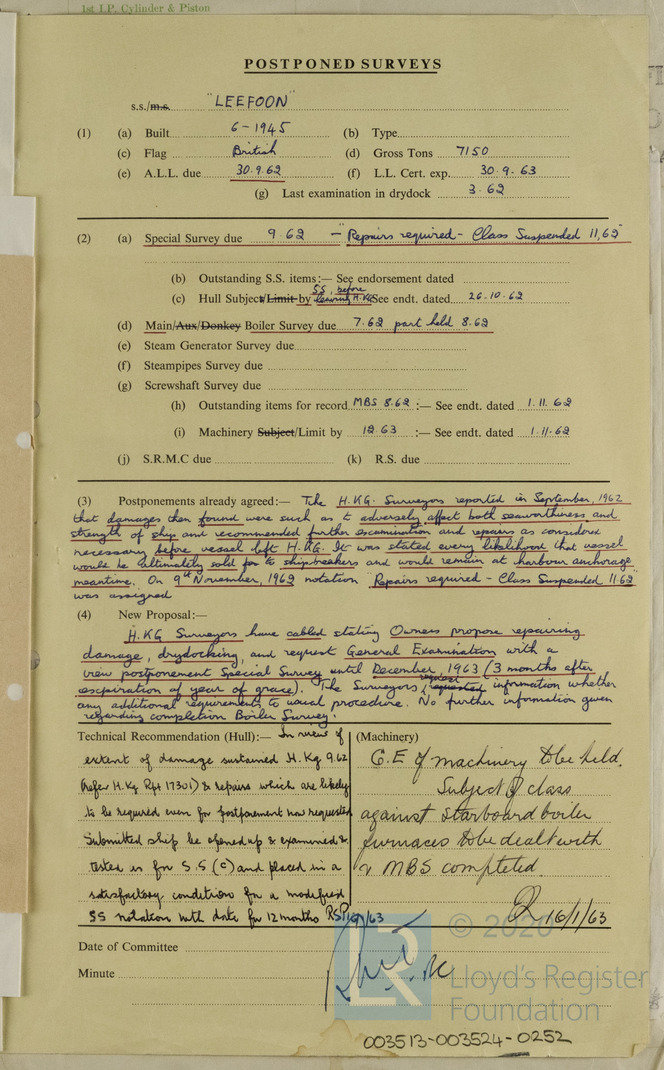 1st I.P. Cylinder & Piston
POSTPONED SURVEYS
s.s./m.s. "LEEFOON"
(1) (a) Built 6-1945 (b) Type
(c) Flag British (d) Gross Tons 7150
(e) A.L.L. due 30.9.62 (f) L.L. Cert. exp. 30.9.63
(g) Last examination in drydock 3.62
(2) (a) Special Survey due 9.62 - "Repairs required - Class Suspended 11,62"
(b) Outstanding S.S. items:— See endorsement dated
SS, before
(c) Hull Subject/Limit by leaving H.KG See endt. dated 26.10.62
(d) Main/Aux/Donkey Boiler Survey due 7.62 part held 8.62
(e) Steam Generator Survey due
(f) Steampipes Survey due
(g) Screwshaft Survey due
(h) Outstanding items for record MBS 8.62 :— See endt. dated 1.11.62
(i) Machinery Subject/Limit by 12.63 :— See endt. dated 1.11.62
(j) S.R.M.C due (k) R.S. due
(3) Postponements already agreed:— The H.KG. Surveyors reported in September, 1962
that damages then found were such as to adversely affect both seaworthiness and
strength of ship and recommended further examination and repairs as considered
necessary before vessel left H.KG. It was stated every likelihood that vessel
would be ultimately sold for to shipbreakers and would remain at harbour anchorage
meantime. On 9th November, 1962 notation "Repairs required - Class Suspended 11.62"
was assigned
(4) New Proposal:—
H.KG Surveyors have cabled stating Owners propose repairing
damage, drydocking, and request General Examination with a
view postponement Special Survey until December, 1963 (3 months after
expiration of year of grace). The Surveyors request requested information whether
any additional requirements to usual procedure. No further information given
regarding completion Boiler Survey.
Technical Recommendation (Hull):— In view of
extent of damage sustained H.Kg 9.62
(refer H.Kg Rpt 17301) & repairs which are likely
to be required even for postponement now requested
Submitted ship be opened up & examined &
tested as for S.S (C) and placed in a
satisfactory condition for a modified
SS notation with date for 12 months
(Machinery)
G.E of machinery to be held.
Subject of class
against starboard boiler
furnaces to be dealt with
& MBS completed
16/1/63
Date of Committee
Minute
© 2020
LR
Lloyd's Register
Foundation
003513-003524-0252